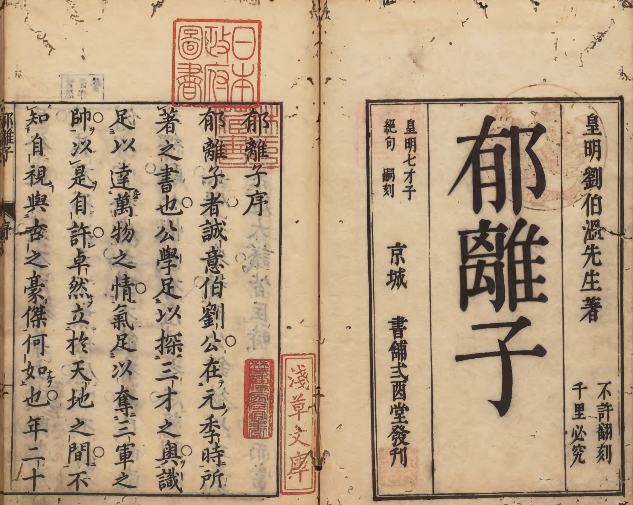 皇明劉伯温先生著
不許翻刻
千里必究
郁離子
皇明七才子
絕句 嗣刻
京城 書舗弍酉堂發刋
日本
政府
圖書
淺草文庫
郁離子序
郁離子者誠意伯劉公在元季時所
著之書也公學足以探三才之奥識
足以達萬物之情氣足以奪三軍之
帥以是自許卓然立於天地之間不
知自視與古之豪傑何如也年二十
郁離子